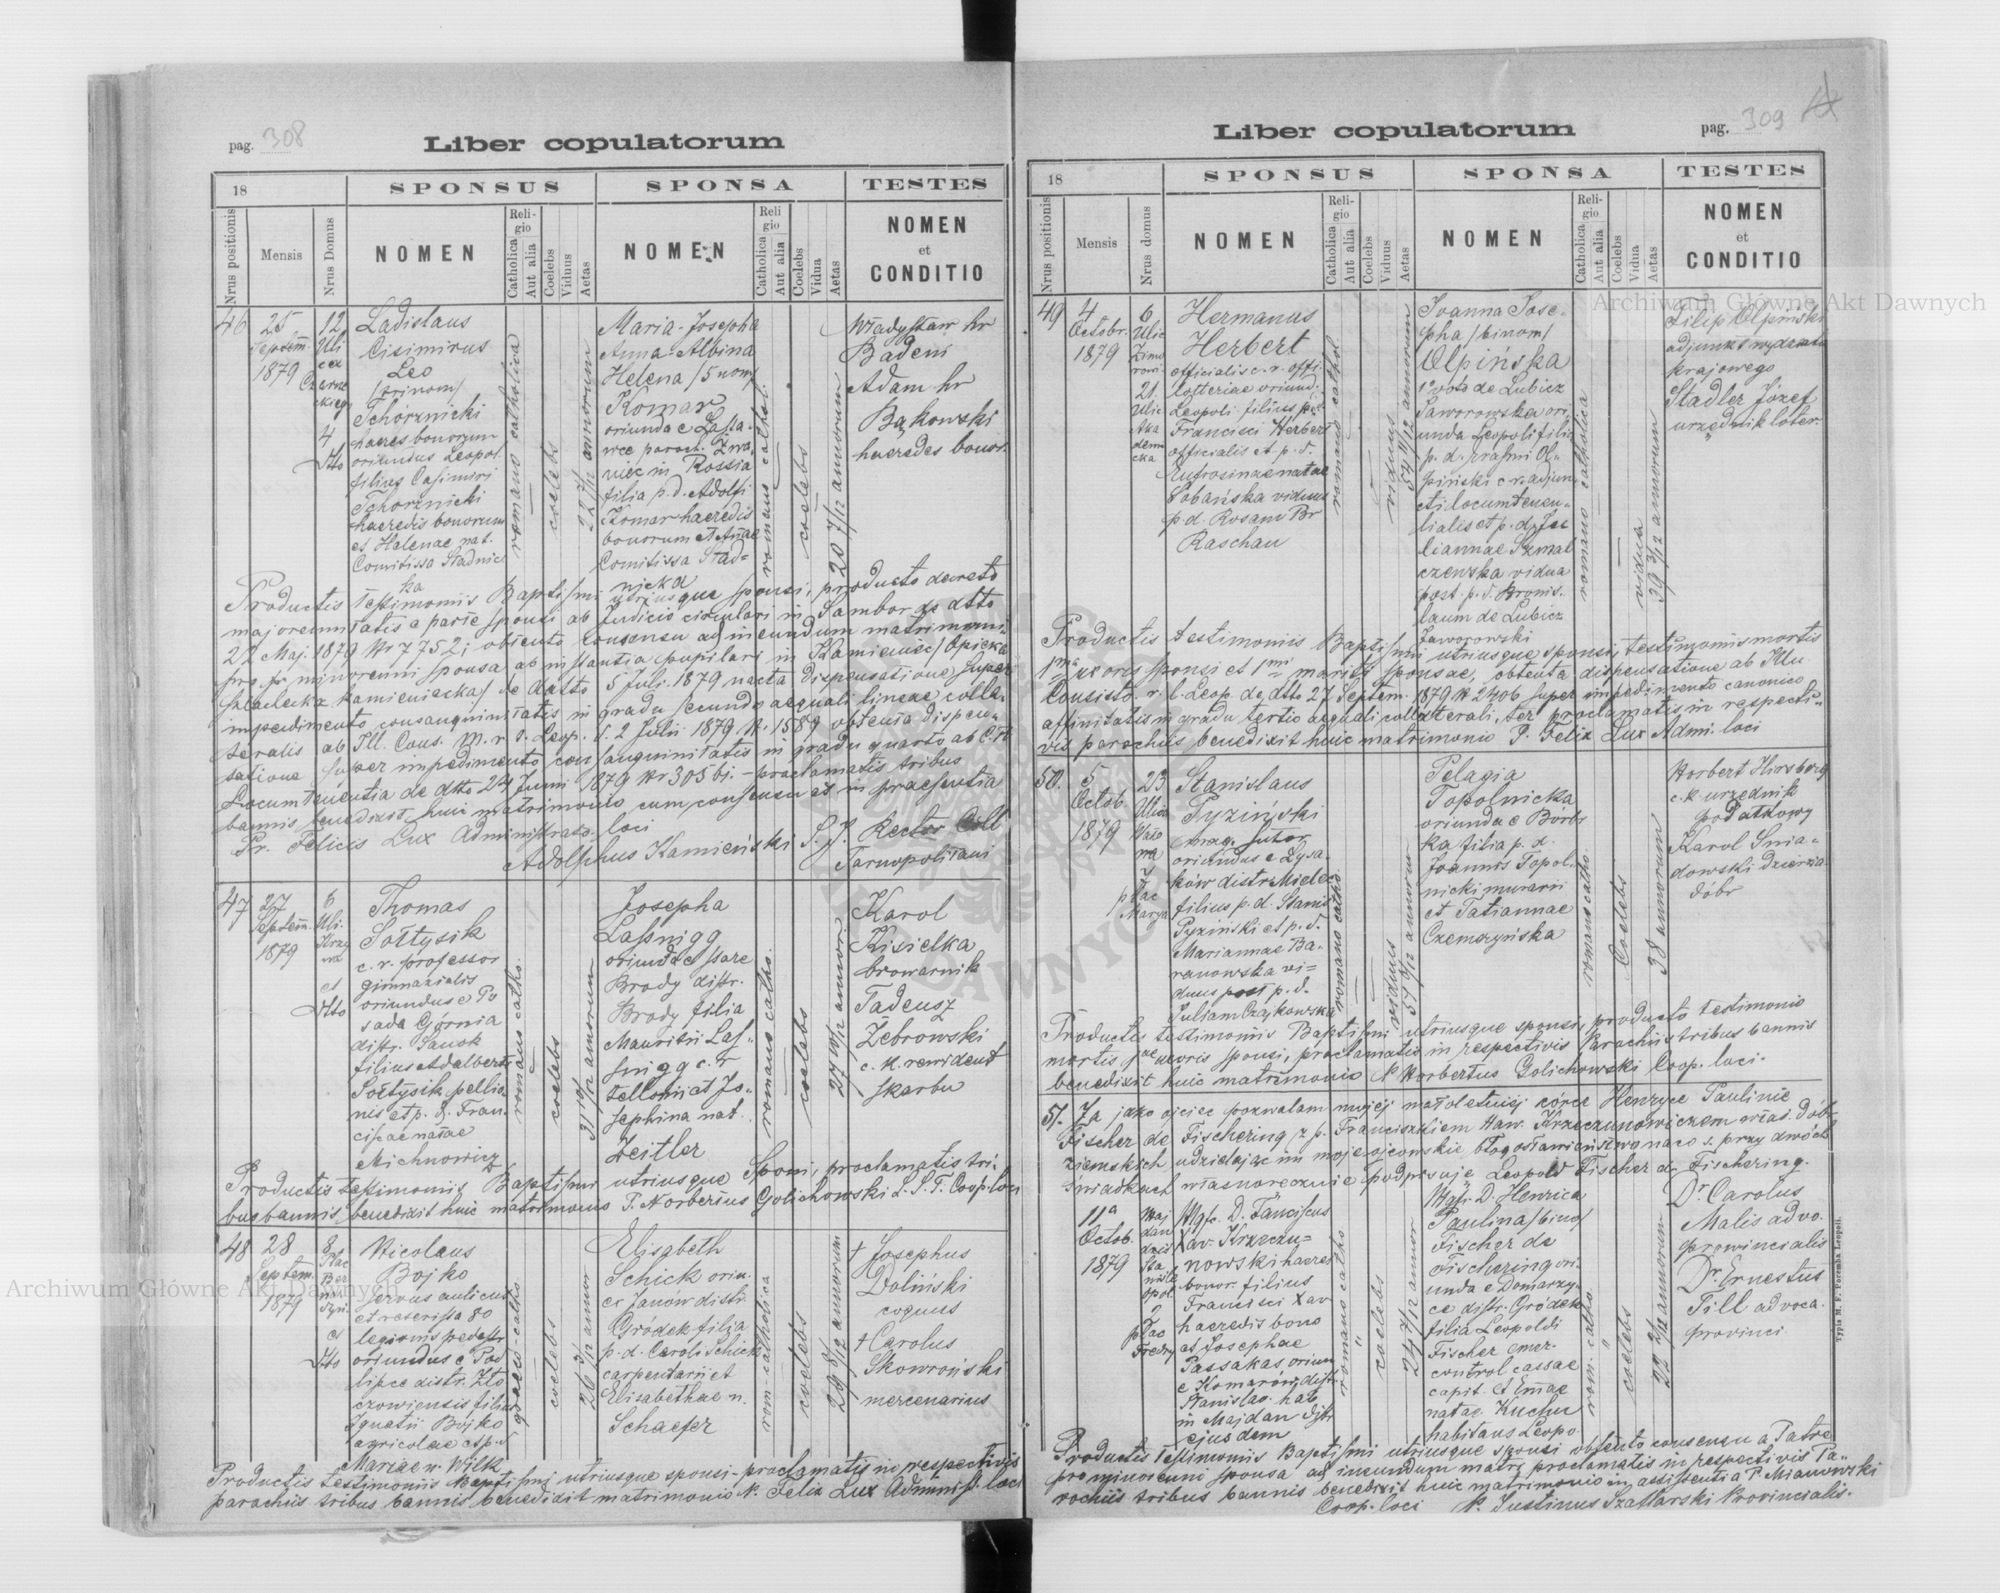 pag. 308
Liber copulatorum
18
SPONSUS
SPONSA
TESTES
Nrus positionis
Mensis
Nrus Domus
NOMEN
Religio
Catholica
Aut alia
Coelebs
Viduus
Aetas
NOMEN
Religio
Catholica
Aut alia
Coelebs
Vidua
Aetas
NOMEN
et
CONDITIO
46
25
Septem.
1879
12
Uli
Ladislaus
Leo
/trinom/
Tchorznicki
haeres bonorum
oriundus Leopol.
filius Casimiri
Tchorznicki
haeredis bonorum
et Helenae nat.
Comitissa Stadnic
ka
romano catholica
coelebs
Maria-Josepha
Anna-Albina
Helena /5 nom/
Komar
oriunda e
in Rossia
filia p. d. Adolfi
Komar haeredis
bonorum et Annae
Comitissa Stad-
nicka
romano cathol.
coelebs
20 7/12 annorum
Władysław hr
Badeni
Adam hr
Bąkowski
haeredes bonor.
Productis Testimoniis Baptismi utriusque sponsi, producto decreto
majorennitatis a parte sponsi ab Judicio circulari in Sambor de dtto
22 Maj. 1879 Nr 7752; obtento consensu ad ineundum matrimoni-
pro minorenni sponsa ab instantia pupilari in Kamieniec /Opieka
szlachecka kamieniecka/ de datto 5 Juli. 1879 nacta dispensatione super
impedimento consanguinitatis in gradu secundo aequali lineae colla-
teralis ab Ill. Cons. M. r. l. Leop. d. 2 Julii 1879 N. 1589 obtenta dispen-
satione super impedimento consanguinitatis in gradu quarto ab C. R.
Locumtenentia de dtto 24 Junii 1879 Nr proclamatis tribus
bannis benedixit huic matrimonio cum consensu et in praesentia
Pr. Felicis Lux Administrato. loci
Adolphus Kamieński S. J. Rector Coll
Tarnopolitani
47
27
Septem.
1879
6
Uli.
et
Thomas
Sołtysik
c. r. professor
gimnasialis
oriundus e Po
sada Górnia
distr. Sanok
filius Adalberti
Sołtysik pellio
nis et p. d. Fran-
ciscae natae
Michnowicz
romano catho.
coelebs
31 10/12 annorum
Josepha
Lassnigg
oriunda e Stare
Brody distr.
Brody filia
Mauritii Las-
snigg c. r
telloni at Jo-
sephina nat.
Zeitler
romano catho.
coelebs
27 10/12 annor.
Karol
Kisielka
browarnik
Tadeusz
Żebrowski
c. k. rewident
skarbu
Productis testimoniis Baptismi utriusque Sponsi, proclamatis tri-
bus bannis benedixit huic matrimonio P. Norbertus Golichowski L. S. T. Coop. loci
48
28
Septem.
1879
8
Plac
Ber
nar
dyn.
et
Nicolaus
Bojko
servus aulicus
et reservista 80
legionis pedestr
oriundus e Pod
lipce distr. Zło
czowiensis filius
Ignatii Bojko
agricolae et p. d
Mariae n. Wilk
graeco-catho.
coelebs
26 9/12 annor
Elisabeth
Schick oriu.
ex Janów distr.
Gródek filia
p. d. Caroli Schick
carpentarii et
Elisabethae n.
Schaefer
rom-catholica
coelebs
29 8/12 annorum
+ Josephus
Doliński
coquus
+ Carolus
Skowroński
mercenarius
Productis testimoniis Baptismi utriusque sponsi-proclamatis in respectivis
parochiis tribus bannis benedixit matrimonio P. Felix Lux Administ. loci
Liber copulatorum
pag. 309
18
SPONSUS
SPONSA
TESTES
Nrus positionis
Mensis
Nrus domus
NOMEN
Religio
Catholica
Aut alia
Coelebs
Viduus
Aetas
NOMEN
Religio
Catholica
Aut alia
Coelebs
Vidua
Aetas
NOMEN
et
CONDITIO
49
4
Octobr.
1879
6
Ulic
Zimo
rowi.
21.
Ulic
Aka
demi
cka
Hermanus
Herbert
officialis c. r. offi.
lotteriae oriund.
Leopoli filius p. d.
Francisci Herbert
officialis et p. d.
Eufrosinae natae
Łobańska viduus
p d. Rosam Br
Raschau
romano cathol
viduus
54 11/12 annorum
Joanna Jose-
pha /binom/
Olpińska
1o voto de Lubicz
Jaworowska ori
unda Leopoli filia
p. d. Erasmi Ol-
piński c. r. adjun
cti locumtenen-
tialis et p. d. Ju
liannae Szmal
czewska vidua
post p. d. Bronis-
laum de Lubicz
Jaworowski
romano catholica
vidua
39 3/12 annorum
Filip Olpiński
adjunkt wydziału
krajowego
Stadler Józef
urzędnik loter.
Productis testimoniis Baptismi utriusque sponsi, testimoniis mortis
1mae uxoris sponsi et 1mi mariti sponsae, obtenta dispensatione ab Illu
Consisto. r. l. Leop. de dtto 27 Septem. 1879 N. 2406 super impedimento canonico
affinitatis in gradu tertio aequali collaterali, ter proclamatis in respecti-
vis parochiis benedixit huic matrimonio P. Felix Lux Admi. loci
50.
5
Octob.
1879
23
Ulica
Wało
wa
7
plac
Marya
Stanislaus
Pyziński
mag. sutor
oriundus e Łysa-
ków distr. Mielec
filius p. d. Stanis
Pyziński et p. d.
Mariannae Ba-
ranowska vi-
duus post p. d.
Juliam Czajkowska
romano catho.
viduus
Pelagia
Topolnicka
oriunda e Borb
ka filia p. d.
Joannis Topol-
nicki murarii
et Tatiannae
Czemeryńska
romano catho.
Coelebs
38 annorum
Norbert Hirsberg
c. k. urzędnik
podatkowy
Karol Snia-
dowski Dzierża
dóbr
Productis testimoniis Baptismi utriusque sponsi, producto testimonio
mortis 1ae uxoris sponsi, proclamatis in respectivis Parochiis tribus bannis
benedixit huic matrimonio P. Norbertus Golichowski Coop. loci.
51.
Ja jako ojciec pozwalam mojej małoletniej córce Henryce Paulinie
Fischer de Fischering z p. Franciszkiem Xaw. Krzeczunowiczem właś. dóbr
ziemskich udzielając im moje ojcowskie błogosławieństwo na co s. przy dwóch
świadkach własnoręcznie podpisuję Leopold Fischer de Fischering.
11a
Octob.
1879
Maj
dan
2
plac
Fredry
Mgfc. D. Fanciscus
Xav. Krzeczu-
nowski haeres
bonor. filius
Francisci Xav
haeredis bono
at Josephae
Passakas oriun
e Komarów distr
Stanislao. hab
in Majdan distr
ejusdem
romano catho
coelebs
24 7/12 annor
Mgfc. D. Henrica
Paulina /bino/
Fischer de
Fischering ori-
unda e Domarzy-
ce distr. Gródek
filia Leopoldi
Fischer emer-
control cassae
capit. et Emae
natae Kuchn
habitans Leopo.
rom. catho.
coelebs
22 2/12 annorum
Dr Carolus
Malis advo.
prowincialis
Dr. Ernestus
Till advoca.
provinci
Productis Testimoniis Baptismi utriusque sponsi obtento consensu a Patre
pro minorenni sponsa ad ineundum matri proclamatis in respectivis Pa-
rochiis tribus bannis benedixit huic matrimonio in assistentia P. Mianowski
Coop. loci P. Justinus Szaflarski Provincialis.
Typis M. F. Poremba Leopoli.
Archiwum Główne Akt Dawnych
Archiwum Główne Akt Dawnych